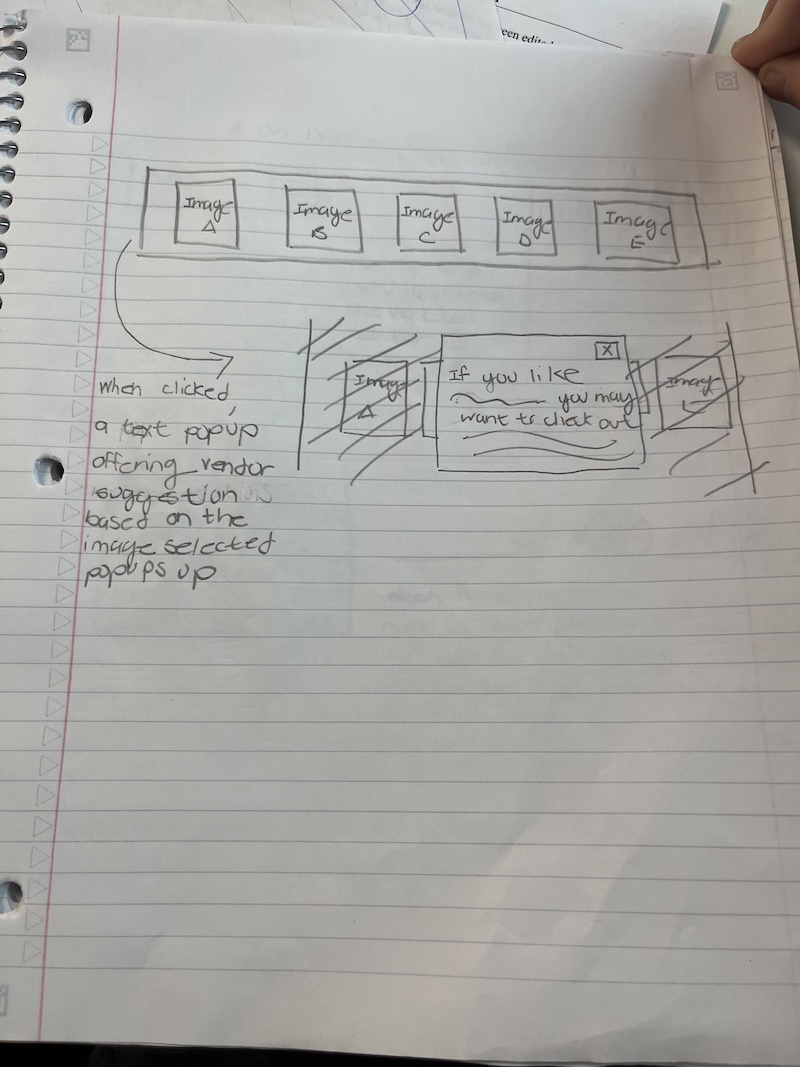 een edite
Image
A
Image
B
Image
C
Image
D
Image
E
when clicked,
a text popup
offering vendor
suggestion
based on the
image selected
popups up
Image
A
X
If you like
you may
want to check out
Image
C